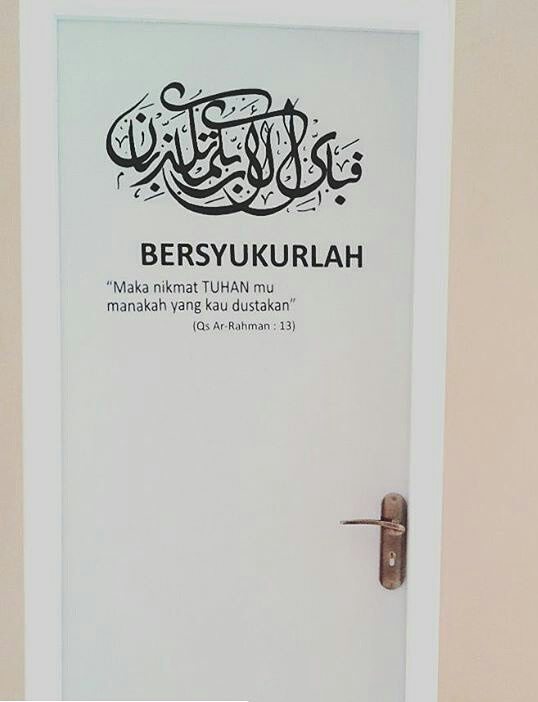 فبأي آلاء ربكما تكذبان
BERSYUKURLAH
“Maka nikmat TUHAN mu
manakah yang kau dustakan”
(Qs Ar-Rahman : 13)